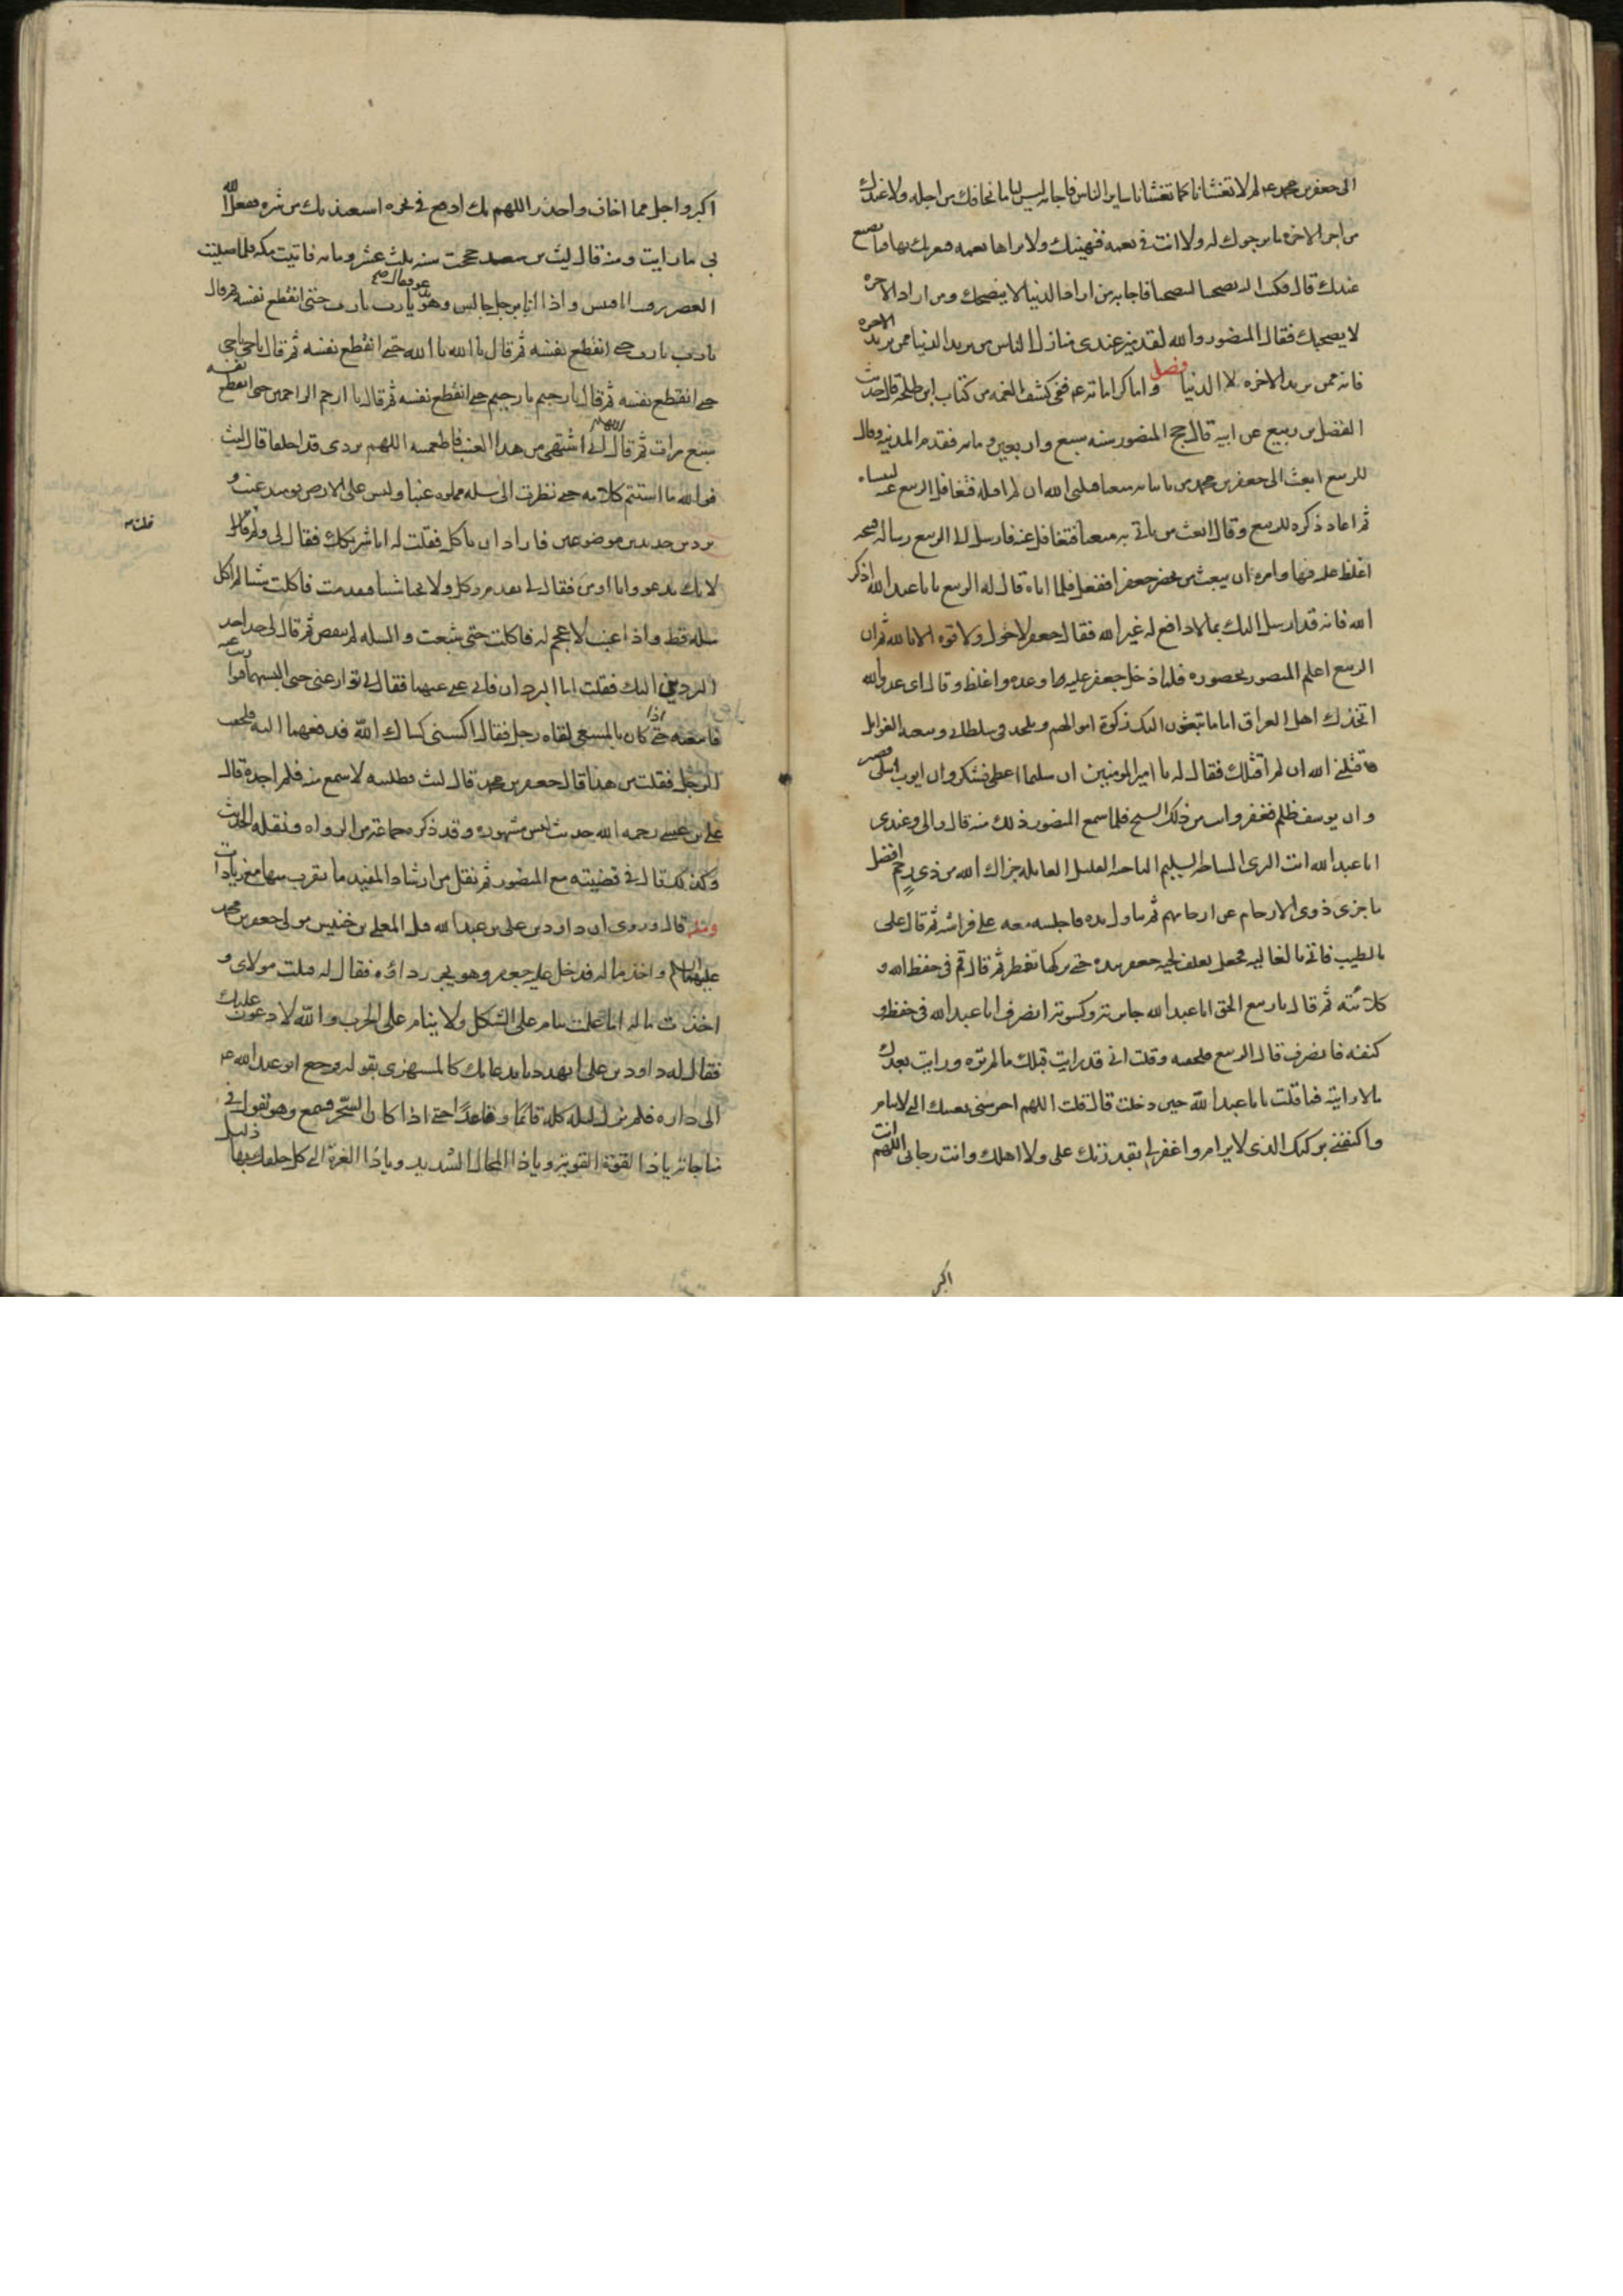 الى جعفر بن محمد عم لم لا تغشانا كما تغشانا ساير الناس فاجابه ليس لنا ما نخافك من اجله ولا عندك
من امر الاخره ما نرجوك له ولا انت في نعمه فنهنيك ولا نراها نقمه فنعزيك بها فما نصنع
عندك قال فكتب اليه تصحبنا لتنصحنا فاجابه من اراد الدنيا لا ينصحك ومن اراد الاخره
لا يصحبك فقال المنصور والله لقد ميز عندى منازل الناس من يريد الدنيا ممن يريد الاخره
فانه ممن يريد الاخره لا الدنيا فصل واما كراماته عم ففي كشف الغمه من كتاب ابن طلحه قال حدث
الفضل بن ربيع عن ابيه قال حج المنصور سنه سبع واربعين ومايه فقدم المدينه وقال
للربيع ابعث الى جعفر بن محمد من ياتينا به سعيا قتلنى الله ان لم اقتله فتغافل الربيع عنه لينساه
ثم اعاد ذكره للربيع وقال ابعث من ياتى به متعبا فتغافل عنه فارسل الى الربيع رساله قبيحه
اغلظ عليه فيها وامره ان يبعث من يحضر جعفرا ففعل فلما اتاه قال له الربيع يا با عبد الله اذكر
الله فانه قد ارسل اليك بما لا دافع له غير الله فقال جعفر لا حول ولا قوه الا بالله ثم ان
الربيع اعلم المنصور بحضوره فلما دخل جعفر عليه اوعده واغلظ وقال اى عدو الله
اتخذك اهل العراق اماما يبعثون اليك زكوة اموالهم وتلحد في سلطاني وتبغيه الغوايل
قتلني الله ان لم اقتلك فقال له يا امير المومنين ان سليما اعطى فشكر وان ايوب ابتلى فصبر
وان يوسف ظلم فغفر وانت من ذلك السنخ فلما سمع المنصور ذلك منه قال والى وعندى
ابا عبد الله انت البرى الساحه السليم الناحيه القليل الغايله جزاك الله من ذى رحم افضل
ما جزى ذوى الارحام عن ارحامهم ثم تناول يده فاجلسه معه على فراشه ثم قال على
بالطيب فاتي بالغاليه فجعل يغلف لحيه جعفر بيده حتى تركها تقطر ثم قال قم فى حفظ الله و
كلائته ثم قال يا ربيع الحق ابا عبد الله جايزته وكسوته انصرف ابا عبد الله فى حفظه و
كنفه فانصرف قال الربيع فلحقته وقلت اني قد رايت قبلك ما لم تره ورايت بعدك
ما لا رايته فما قلت يا با عبد الله حين دخلت قال قلت اللهم احرسنى بعينك التي لا تنام
واكنفني بركنك الذى لا يرام واغفر لي بقدرتك على ولا اهلك وانت رجائى اللهم انت
اكبر
اكبر واجل مما اخاف واحذر اللهم بك ادفع في نحره استعيذ بك من شره ففعل الله
بى ما رايت ومنه قال ليث بن سعد حججت سنه ثلث عشر ومايه فاتيت مكه فلما صليت
العصر رقيت ابا قبيس واذا انا برجل جالس وهو يدعو فقال يا رب يا رب حتى انقطع نفسه ثم قال
يا رب يا رب حتى انقطع نفسه ثم قال يا الله يا الله حتى انقطع نفسه ثم قال يا حى يا حى
حتى انقطع نفسه ثم قال يا رحيم يا رحيم حتى انقطع نفسه ثم قال يا ارحم الراحمين حتى انقطع نفسه
سبع مرات ثم قال اللهم انى اشتهى من هذا العنب فاطعمنيه اللهم بردى قد اخلقا قال ليث
فو الله ما استتم كلامه حتى نظرت الى سله مملوه عنبا وليس على الارض يومئذ عنب و
بردين جديدين موضوعين فاراد ان ياكل فقلت له انا شريكك فقال لى ولم فقلت
لانك تدعو وانا اومن فقال لي تقدم وكل ولا تخبا شيا فتقدمت فاكلت شيا لم اكل
مثله قط واذا عنب لا عجم له فاكلت حتى شبعت والسله لم تنقص ثم قال لى خذ احب
البردين اليك فقلت اما البردان فاني غني عنهما فقال لي توار عنى حتى البسهما فتواريت عنه
فاتبعته حتى اذا كان بالمسعى لقاه رجل فقال اكسنى كساك الله فدفعهما اليه فلحقت
الرجل فقلت من هذا قال جعفر بن محمد قال ليث فطلبته لاسمع منه فلم اجده قال
على بن عيسى رحمه الله حديث ليث مشهور وقد ذكره جماعة من الرواه ونقله الحديث
وكذلك قال في قضيته مع المنصور ثم نقل من ارشاد المفيد ما يقرب منها مع زيادات
ومنه قال وروى ان داود بن على بن عبد الله قتل المعلى بن خنيس مولى جعفر بن محمد
عليهما السلام واخذ ماله فدخل عليه جعفر وهو يجر رداؤه فقال له قتلت مولاى و
اخذت ماله اما علمت ان الرجل ينام على الثكل ولا ينام على الحرب والله لادعون عليك
فقال له داود بن على اتهددنا بدعايك كالمستهزى بقوله فرجع ابو عبد الله عم
الى داره فلم يزل ليله كله قائما وقاعدا حتى اذا كان السحر فسمع وهو يقول في
مناجاته يا ذا القوة القويه ويا ذا المحال الشديد ويا ذا العزة التي كل خلقك لها ذليل